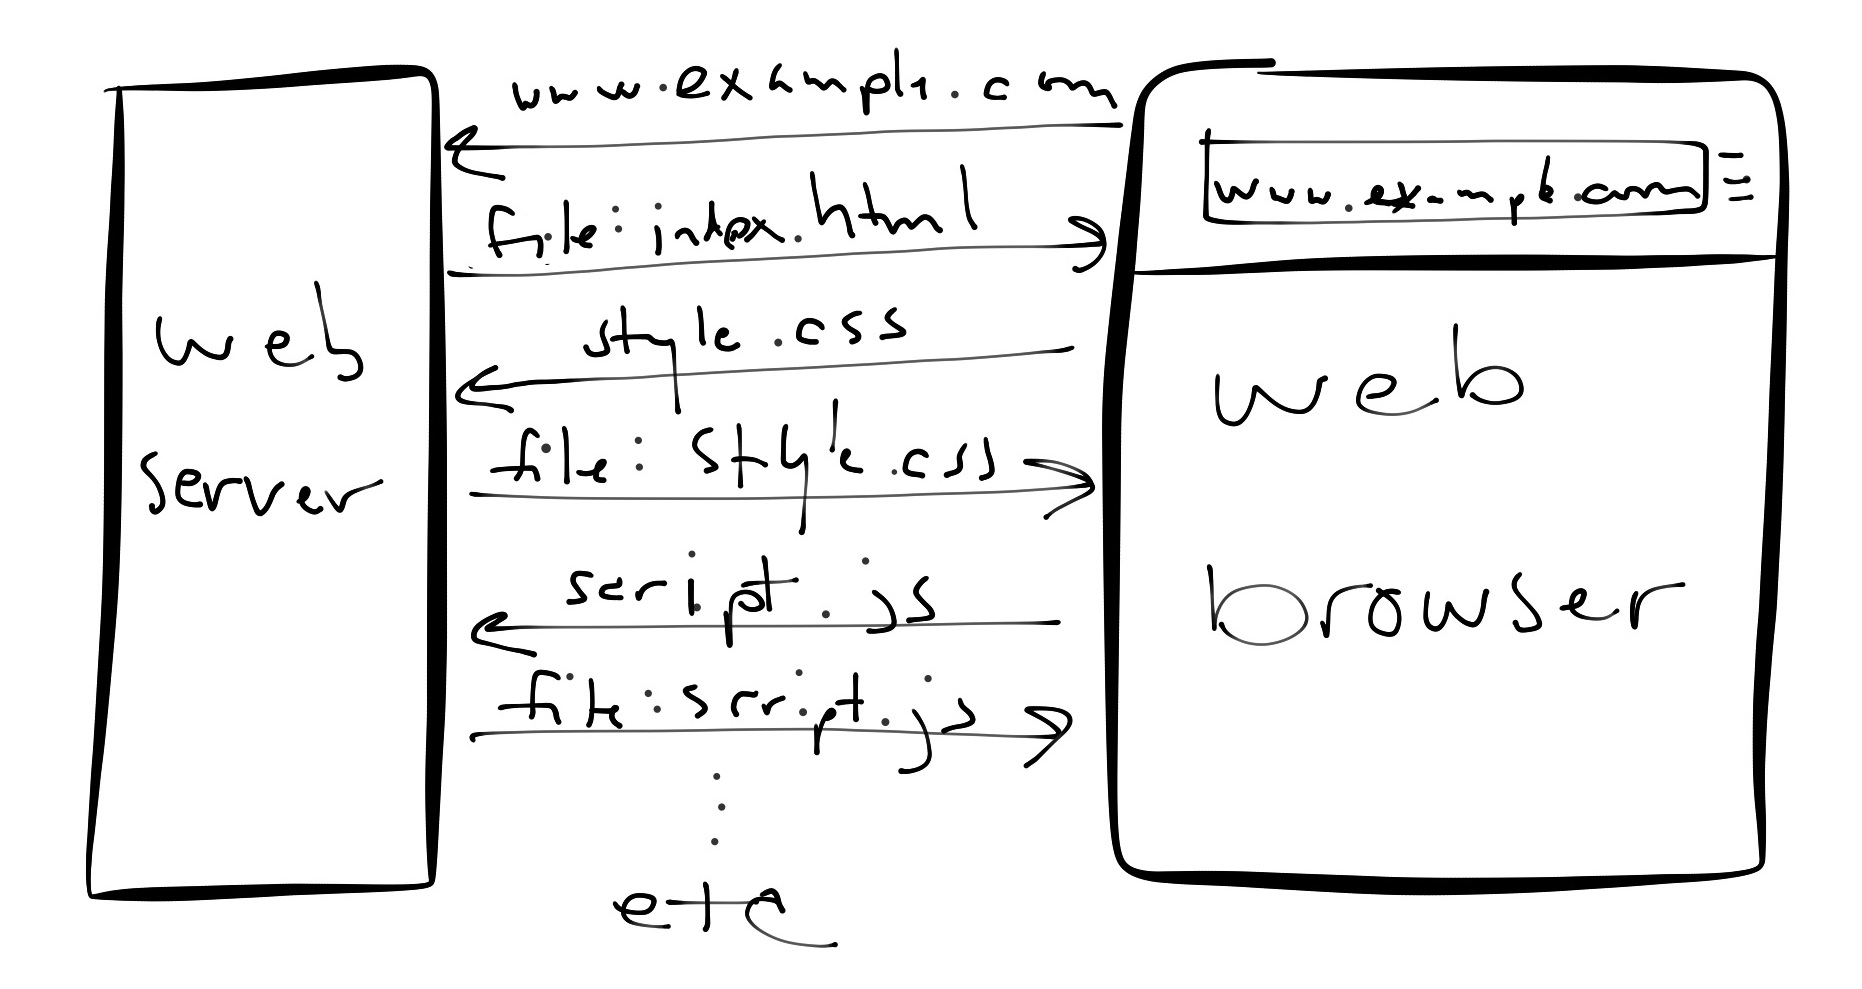 www.example.com
file: index.html
style.css
file: style.css
script.js
file: script.js
etc
web
server
www.example.com
web
browser